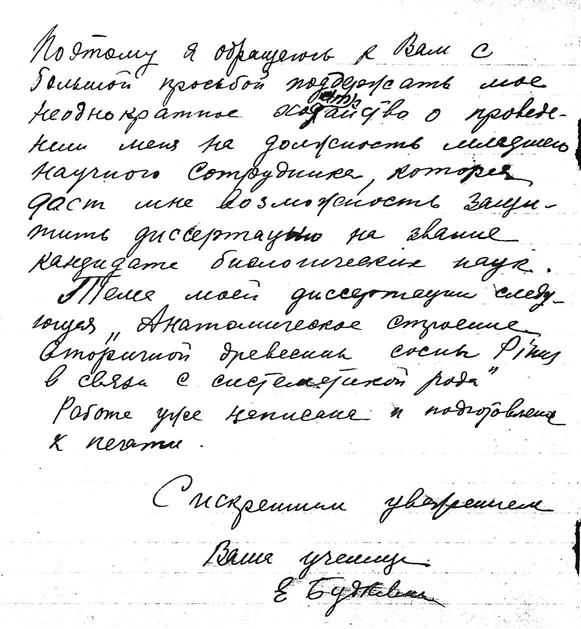 Поэтому я обращаюсь к Вам с
большой просьбой поддержать мое
неоднократное ходатайство о проведе-
нии меня на должность младшего
научного сотрудника, которая
даст мне возможность защи-
тить диссертацию на звание
кандидата биологических наук.
Тема моей диссертации следу-
ющая „Анатомическое строение
вторичной древесины сосны Pinus
в связи с систематикой рода"
Работа уже написана и подготовлена
к печати.
С искренним уважением
Ваша ученица
Е